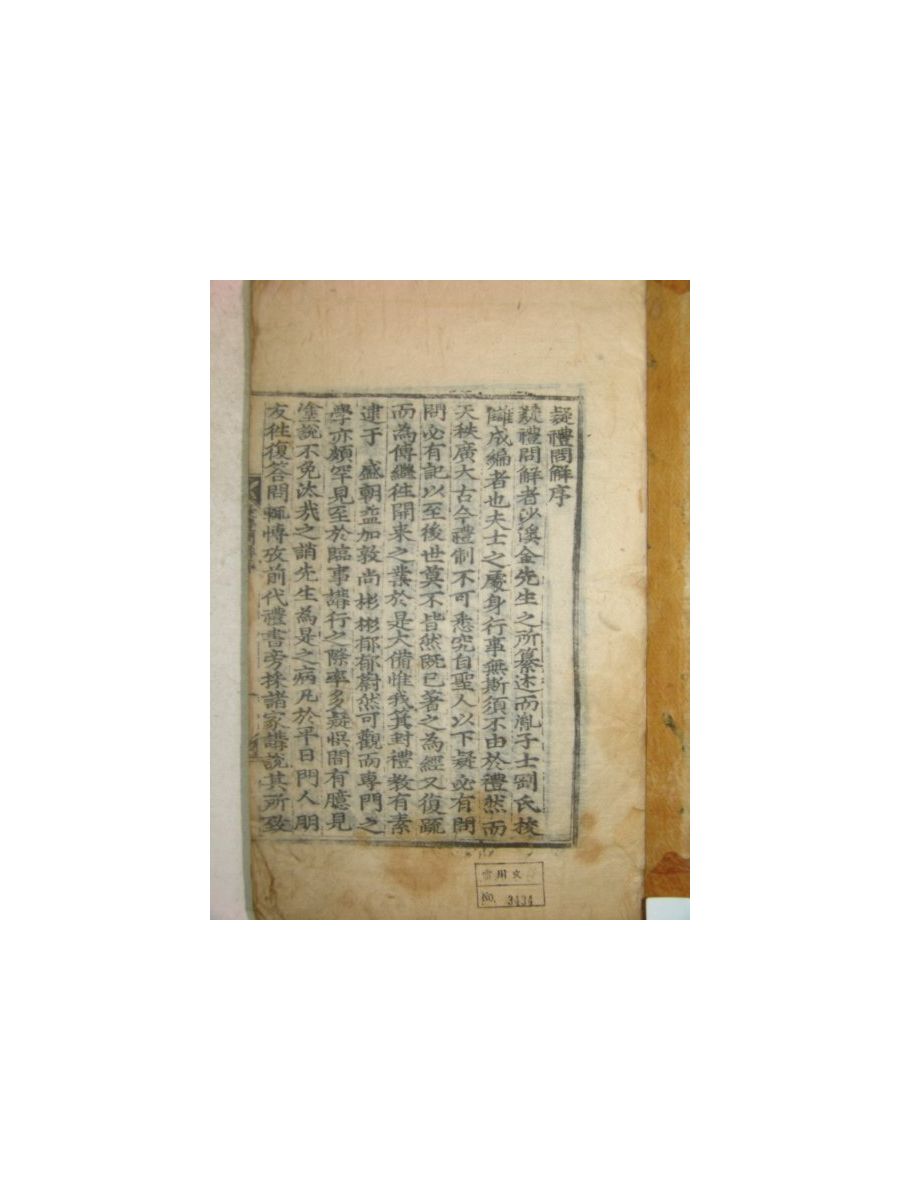 疑禮問解序
疑禮問解者沙溪金先生之所纂述而胤子士剛氏挍
讎成編者也夫士之處身行事無斯須不由於禮然而
天秩廣大古今禮制不可悉究自聖人以下疑必有問
問必有記以至後世莫不皆然旣已著之為經又復疏
而為傳繼徃開来之業於是大備惟我箕封禮教有素
逮于 盛朝益加敦尚彬彬郁郁蔚然可觀而專門之
學亦頗罕見至於臨事講行之際率多疑惧間有臆見
塗說不免汰哉之誚先生為是之病凡於平日門人朋
友徃復答問輒博攷前代禮書旁採諸家講說其所致
川文
No. 3434